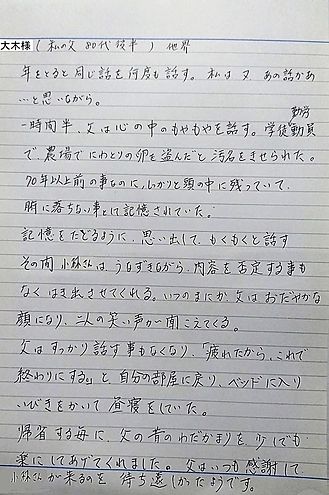 大木様(私の父 80代後半) 他界
年をとると同じ話を何度も話す。私は又あの話かあ
いと思いながら。
勤労
一時間半、父は心の中のもやもやを話す。学徒動員
で、農場でにわとりの卵を盗んだと汚名をきせられた。
70年以上前の事なのに、しっかりと頭の中に残っていて、
腑に落ちない事として記憶されていた。
記憶をたどるように、思い出して、もくもくと話す
その間 小林さんは、うなずきながら、内容を否定する事も
なくはき出させてくれる。いつのまにか、父はおだやかな
顔になり、二人の笑い声が聞こえてくる。
父はすっかり話す事もなくなり、「疲れたから、これで
終わりにする。」と自分の部屋に戻り、ベッドに入り
いびきをかいて昼寝をしていた。
帰省する毎に、父の昔のわだかまりを少しでも
楽にしてあげてくれました。父はいつも感謝して
小林さんが来るのを待ち遠しかったようです。